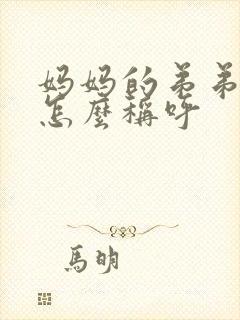 妈妈的弟弟
怎麼稱呼
馬明